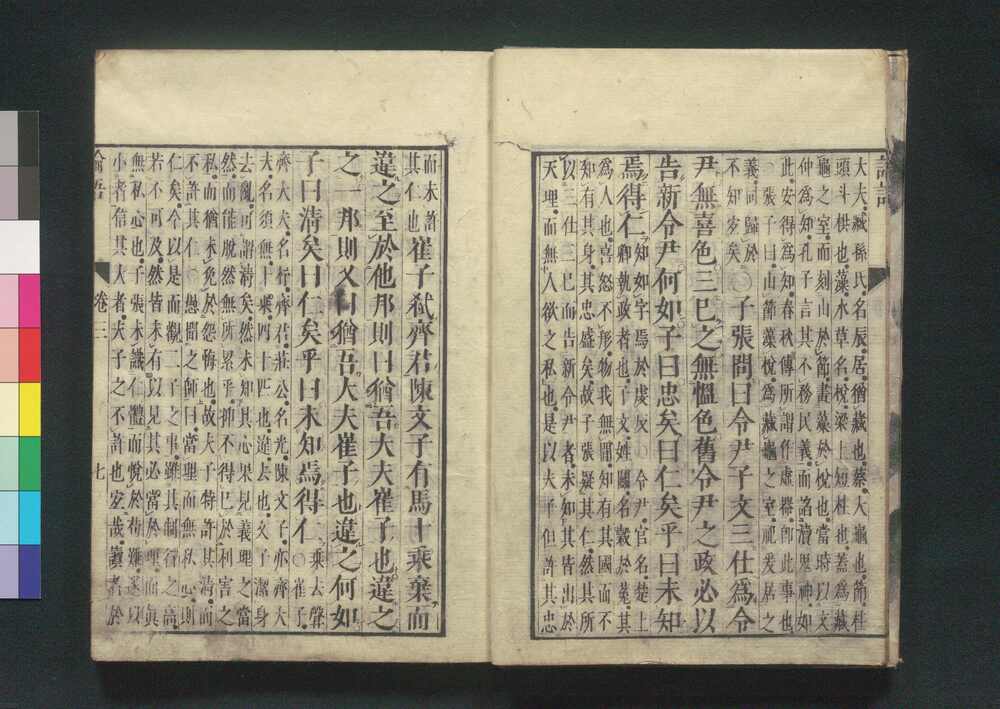 論語
大夫臧孫氏名辰居猶藏也蔡大龜也節柱
頭斗栱也藻水草名梲梁上短柱也蓋為藏
龜之室而刻山於節畫藻於梲也當時以文
仲為知孔子言其不務民義而諂瀆鬼神如
此安得為知春秋傳所謂作虛器即此事也
○張子曰山節藻梲為藏龜之室祀爰居之
義同歸於
不知宜矣
○子張問曰令尹子文三仕爲令
尹無喜色三已之無慍色舊令尹之政必以
告新令尹何如子曰忠矣曰仁矣乎曰未知
焉得仁
知如字焉於虔反○令尹官名楚上
卿執政者也子文姓鬭名穀於菟其
為人也喜怒不形物我無間知有其國而不
知有其身其忠盛矣故子張疑其仁然其所
以三仕三已而告新令尹者未知其皆出於
天理而無人欲之私也是以夫子但許其忠
而未許
其仁也
崔子弑齊君陳文子有馬十乘棄而
違之至於他邦則曰猶吾大夫崔子也違之
之一邦則又曰猶吾大夫崔子也違之何如
子曰清矣曰仁矣乎曰未知焉得仁
乘去聲
○崔子
齊大夫名杼齊君莊公名光陳文子亦齊大
夫名須無十乘四十匹也違去也文子潔身
去亂可謂清矣然未知其心果見義理之當
然而能脫然無所累乎抑不得已於利害之
私而猶未免於怨悔也故夫子特許其清而
不許其仁○愚聞之師曰當理而無私心則
仁矣今以是而觀二子之事雖其制行之高
若不可及然皆未有以見其必當於理而眞
無私心也子張未識仁體而悅於苟難遂以
小者信其大者夫子之不許也宜哉讀者於
論語 卷三 七